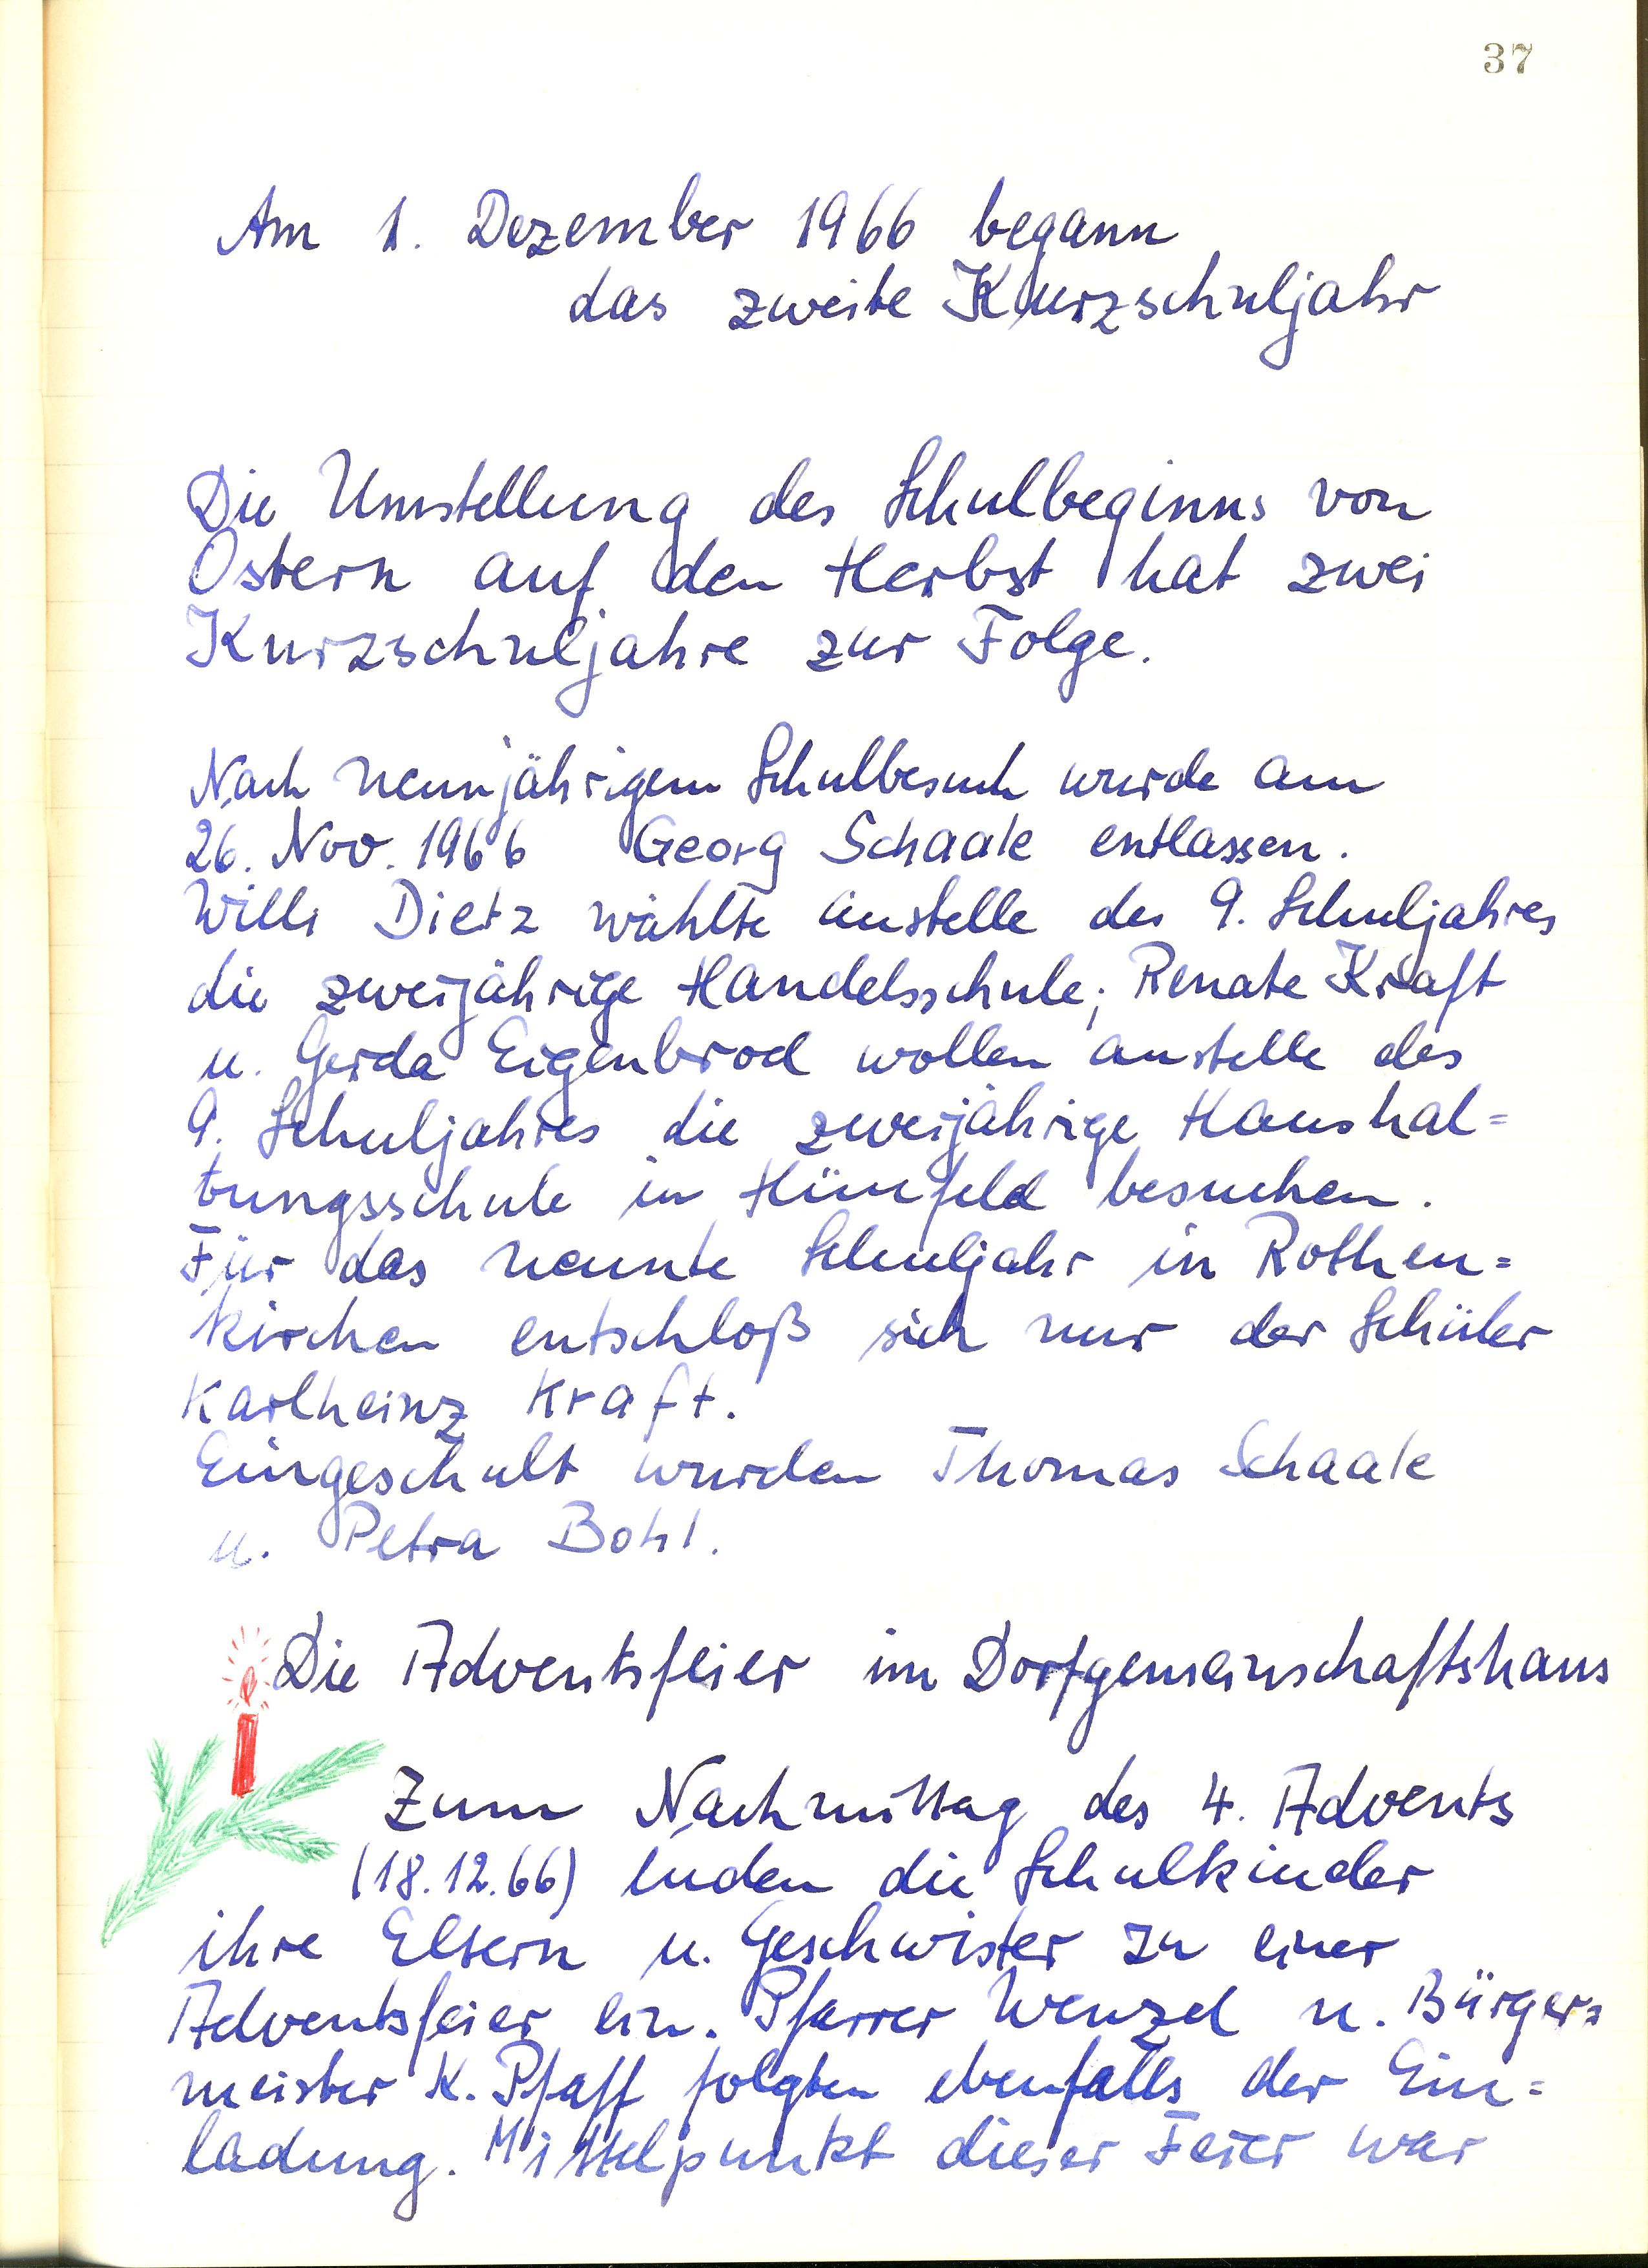 37
Am 1. Dezember 1966 begann
das zweite Kurzschuljahr
Die Umstellung des Schulbeginns von
Ostern auf den Herbst hat zwei
Kurzschuljahre zur Folge.
Nach neunjährigem Schulbesuch wurde am
26. Nov. 1966 Georg Schaake entlassen.
Willi Dietz wählte anstelle des 9. Schuljahres
die zweijährige Handelsschule; Renate Kraft
u. Gerda Eigenbrod wollen anstelle des
9. Schuljahres die zweijährige Haushal=
tungsschule in Hünfeld besuchen.
Für das neunte Schuljahr in Rothen=
kirchen entschloß sich nur der Schüler
Karlheinz Kraft.
Eingeschult wurden Thomas Schaake
u. Petra Bohl.
Die Adventsfeier im Dorfgemeinschaftshaus
Zum Nachmittag des 4. Advents
(18.12.66) luden die Schulkinder
ihre Eltern u. Geschwister zu einer
Adventsfeier ein. Pfarrer Wenzel u. Bürger=
meister K. Pfaff folgten ebenfalls der Ein=
ladung. Mittelpunkt dieser Feier war